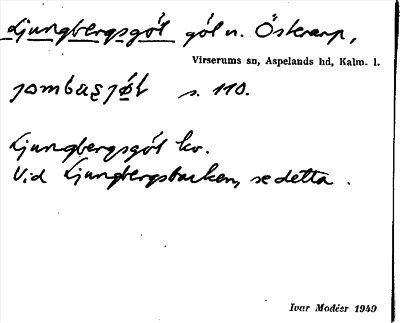 Ljungbergsgöl göl n. Österarp,
Virserums sn, Aspelands hd, Kalm. l.
s. 110.
Ljungbergsgöl kv.
Vid Ljungbergsbacken, se detta.
Ivar Modéer 1949